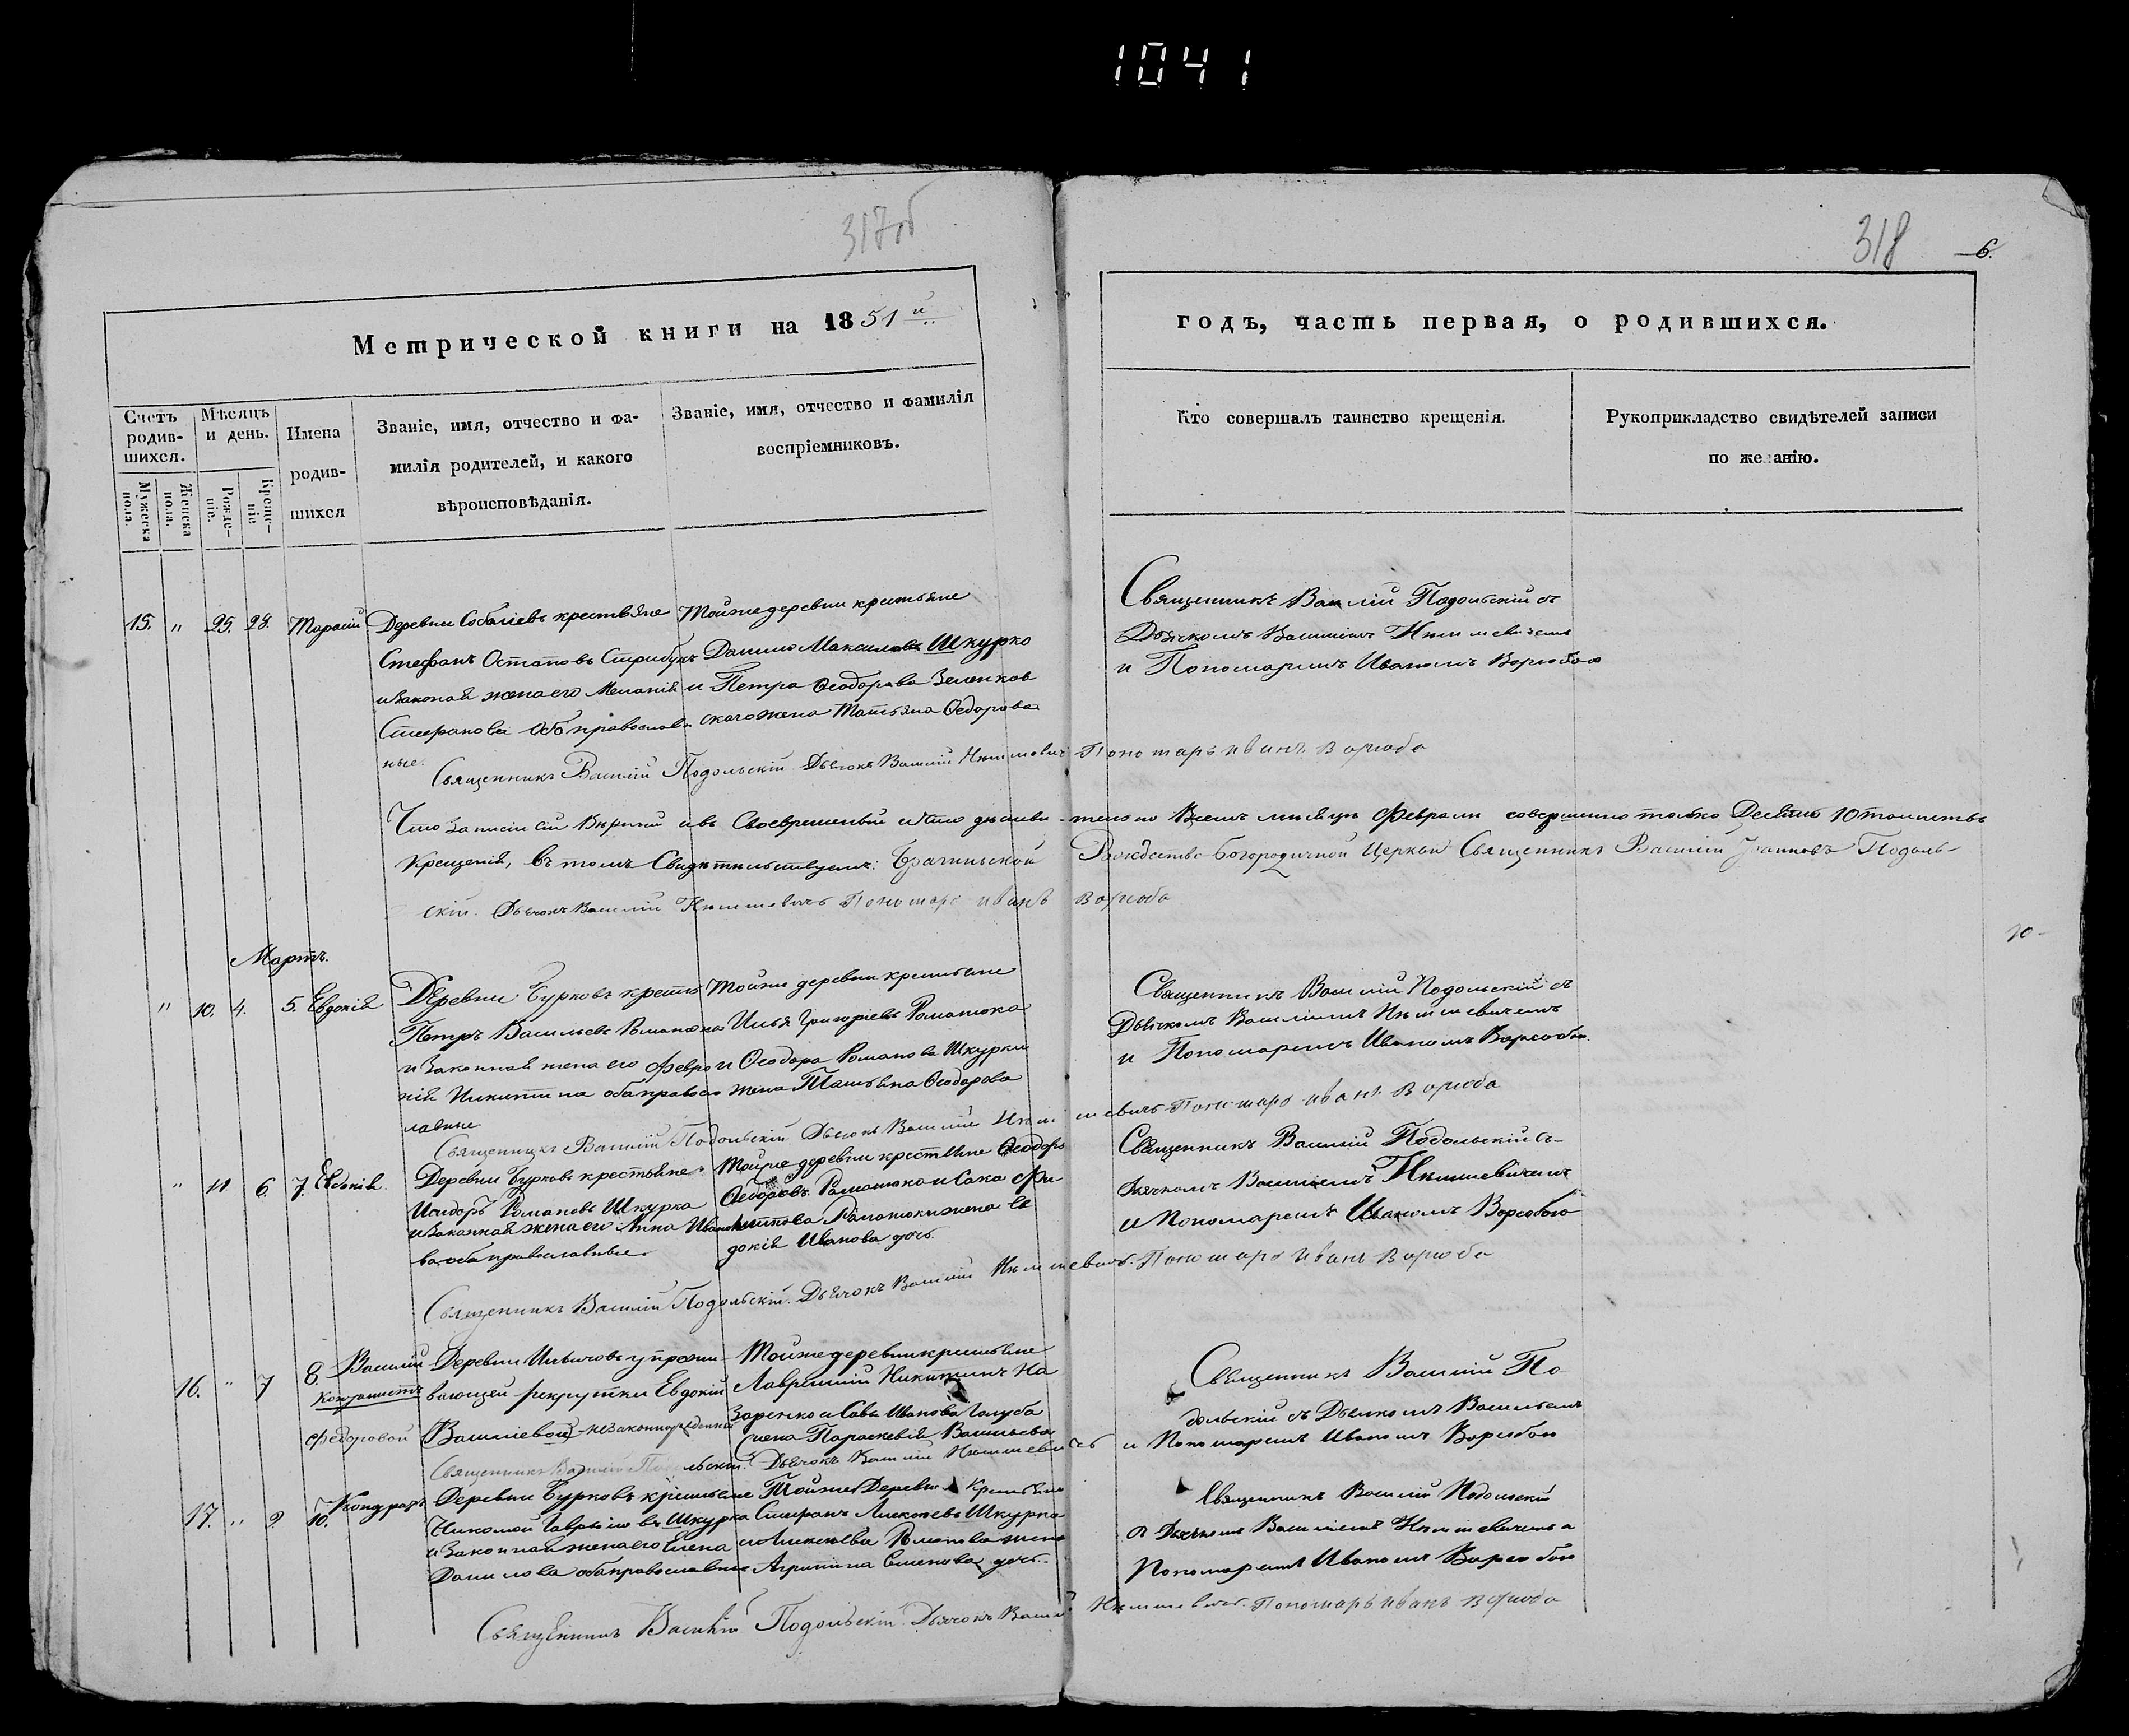 1041
317об
318
6.
Метрической книги на 1851й
годъ, часть первая, о родившихся.
Счетъ родив-шихся.
Мужеска пола.
Женска пола.
Мѣсяцъ и день.
Рожде-ніе.
Креще-ніе
Имена родив-шихся
Званіе, имя, отчество и фа-
милія родителей, и какого
вѣроисповѣданія.
Званіе, имя, отчество и фамилія
воспріемниковъ.
Кто совершалъ таинство крещенія.
Рукоприкладство свидѣтелей записи
по желанію.
15. " 25. 28. Тарасій
Деревни Соболіевъ крестьяне
Стефанъ Остаповъ
и законая жена его Меланія
Стефанова оба православ
ные.
Тойже деревни крестьяне
Данило Максимовъ Шкурко
и Петра Ѳеодорова Зеленков
скаго жена Татьяна Ѳедорова
Священникъ Василій Подольскій съ
Дьячкомъ Василіемъ
и Пономаремъ Иваномъ Ворсобою
Священникъ Василій Подольскій Дьячокъ Василій Пономарь Иванъ Ворсоба
Что записи сіи вѣрны и въ своевременной дѣйстви-тельно всемъ мѣсяцѣ Февралѣ совершенно только Десять 10 таинствъ
Крещенія, въ томъ Свидѣтельствуемъ: Брагинской Рождество-Богородичной Церкви Священникъ Василій Іоанновъ Подоль-
скій. Дьячокъ Василій Пономарь Иванъ Ворсоба
10
Мартъ.
" 10. 4. 5. Евдокія
Деревни Бурковъ крестья
Петръ Васильевъ Романюка
и законная жена его Февро
нія Никитина оба правос
лавные
Тойже деревни крестьяне
Илья Григоріевъ Романюка
и Ѳеодора Романова Шкурки
жена Татьяна Ѳеодорова
Священникъ Василій Подольскій съ
Дьячкомъ Василіемъ
и Пономаремъ Иваномъ Ворсобою.
Священникъ Василій Подольскій Дьячокъ Василій Пономарь Иванъ Ворсоба
" 11 6. 7. Евдокія.
Деревни Бурковъ крестьяне
Исидоръ Романовъ Шкурка
и законная жена его Анна Ивано
ва оба православные
Тойже деревни крестьяне Ѳеодоръ
Ѳедоровъ Романюко и Сака Фи-
липпова Романюки жена Ев
докія Иванова дочь.
Священникъ Василій Подольскій съ-
Дьячкомъ Василіемъ
и Пономаремъ Иваномъ Ворсобою
Священникъ Василій Подольскій. Дьячокъ Василій Пономарь Иванъ Ворсоба
16. " 7 8. Василій
Федоровой
Деревни Ильичовъ у прожи-
вающей рекрутки Евдокіи
Василіевой незаконнорожденный
Тойже деревни крестьяне
Лаврентій Никитинъ На
заренко и Савы Иванова Голуба
жена Параскевія Васильева
Священникъ Василій По-
дольскій съ Дьячкомъ Василіемъ
и Пономаремъ Иваномъ Ворсобою
Священникъ Василій Подольскій. Дьячокъ Василій
17. " 9 10. Кондратъ
Деревни Бурковъ крестьяне
Николай Гавріиловъ Шкурка
и Законная жена его Елена
Данилова оба православные
Тойже Деревни Крестьяне
Стефанъ Алексѣевъ Шкурка
и Алексѣева Романова жена
Агрипина Семенова дочь..
Священникъ Василій Подольскій
съ Дьячкомъ Василіемъ и
Пономаремъ Иваномъ Ворсобою
Священникъ Василій Подольскій. Дьячокъ Василій Пономарь Иванъ Ворсоба